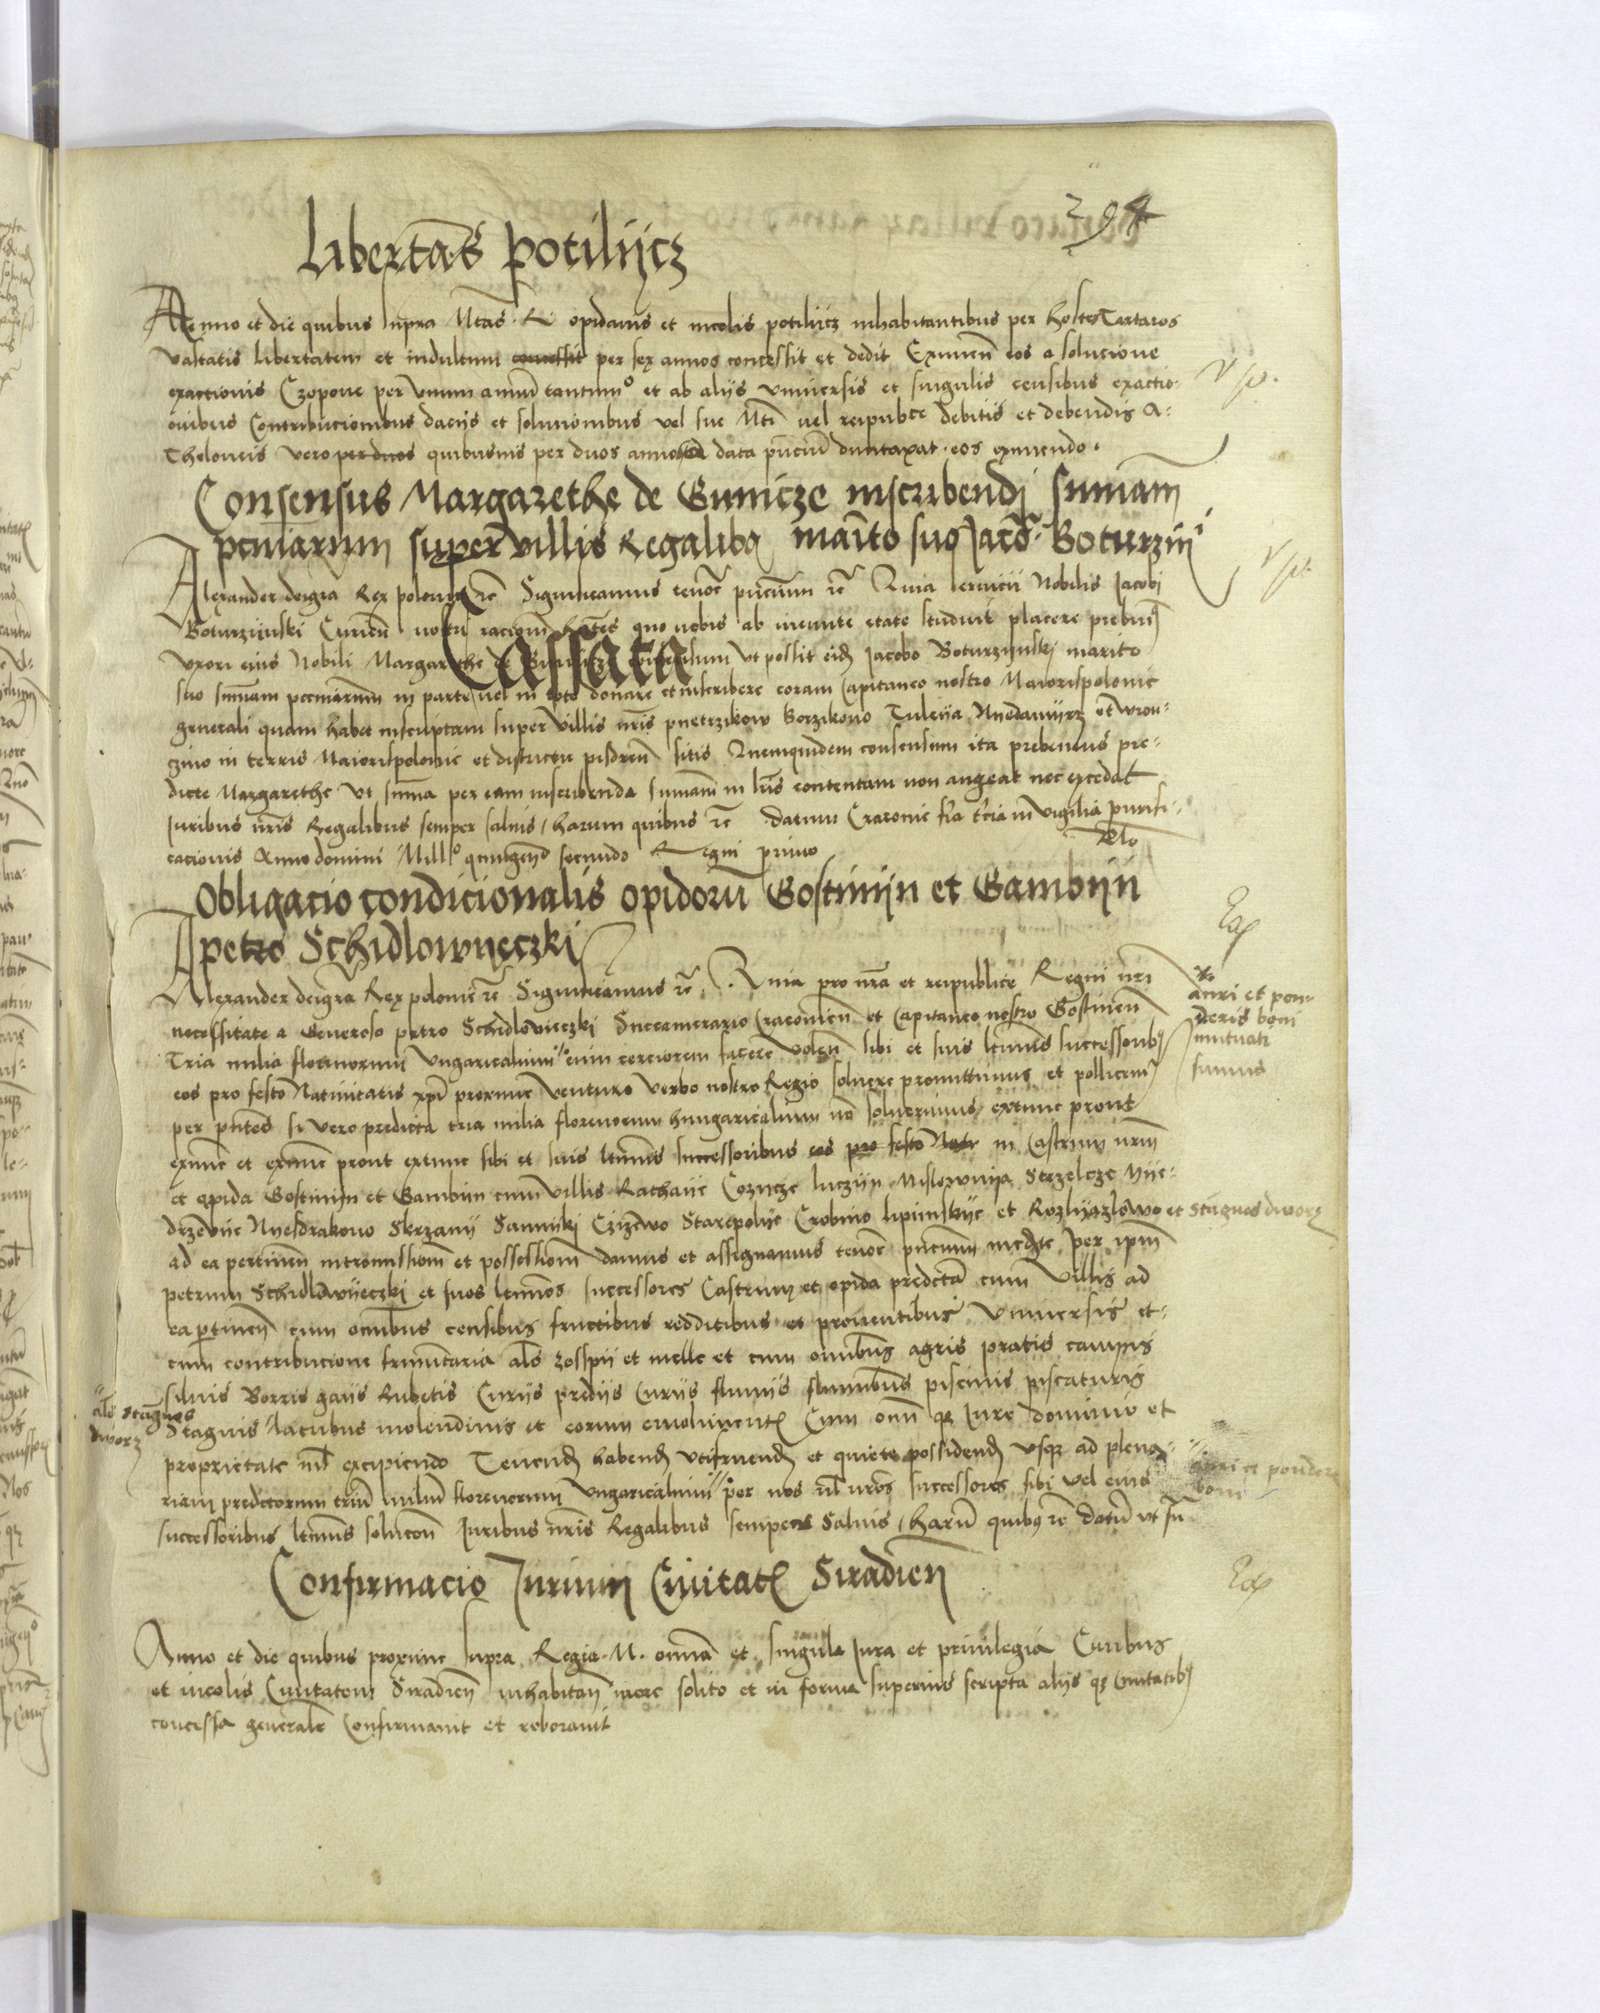 294
Libertas Potilijcz
Anno et die quibus supra Mtas R opidanis et incolis potilijcz inhabitantibus per hostes Tartaros
vastatis libertatem et indultum concessit per sex annos concessit et dedit Eximen eos a solucione
exactionis Czopove per vnum annu tantum et ab alijs vniversis et singulis censibus exactio-
nibus Contribucionibus dacijs et solucionibus vel sue Mti vel reipublce debitis et debendis A-
Theloneis vero per duos quibusuis per duos annos data pncium duntaxat eos eximendo
Consensus Margarethe de Gunicze inscribendj summam
pecuniarum super villis Regalibus marito suo Jacobo Boturzin
Alexander dei gra Rex polonie etc Significamus tenore pncium etc Quia servicij Nobilis Jacobi
Boturzijnski Curien nostri racionem hntes quo nobis ab ineunte etate studuit placere prebuimus
Vxori eius Nobili Margarethe de consensum vt possit eidem Jacobo Boturzijnskj marito
Cassata
suo summam pecuniarum in parte vel in toto donare et inscribere coram Capitaneo nostro Maiorispolonie
generali quam habet inscriptam super villis nris pnetrzikow korzikowo Tuleija Nijedamijrz et wron-
zino in terris Maiorispolonie et districtu pisdren sitis Quemquidem consensum ita prebemus pre-
dicte Margarethe vt summa per eam inscribenda summam in lris contentam non augeat nec excedat
Juribus nris Regalibus semper saluis harum quibus etc Datum Cracovie fia tercia in vigilia purifi-
cacionis Anno domini Millo quingen secundo Regni primo
Rlo
Obligacio condicionalis opidoru Gostinijn et Gambijn
petro Schidlowyeczki
Alexander dei gra Rex polonie etc Significamus etc Quia pro nra et reipublice Regni nri
necessitate a Generoso petro Schidlovieczki Succamerario Cracovien et Capitaneo nostro Gostinen
auri et pon-
deris boni
mutuati
sumus
Tria milia florenorum Vngaricalium eum cerciorem facere volen sibi et suis ltimis successoribus
eos pro festo Natiuitatis xpi proxime venturo verbo nostro Regio soluere promittimus et pollicemur
per pntes si vero predicta tria milia florenorum hungaricalium no soluerimus extunc prout
exnunc et exnunc prout extunc sibi et suis ltimis successoribus eos pro festo Nati in Castrum nrm
et opida Gostinijn et Gambin cum villis Rathaije Cozucze luczijn Mislownija Strzelcze Nije-
drzewije Nijesdrakowo Skrzanij Sannijki Czizewo Starepolije Crobino lipijnskije et Rozlijazlowo et stagnos dworz
ad ea pertinen intromissionem et possessionem damus et assignamus tenore pncium mediante per ipm
petrum Schidlowijeczki et suos ltimos successores Castrum et opida predcta cum villis ad
ea ptinen cum omnibus censibus fructibus redditibus et prouentibus vniuersis et
cum contribucione frumentaria als zosspij et melle et cum omnibus agris pratis campis
siluis Borris gaijs Rubetis Curijs predijs Curijs fluuijs fluminibus piscinis piscaturis
als stagnos
dworz
Stagnis lacubus molendinis et eorum emolumentis Cum omni qz Jure dominio et
proprietate nil excipiendo Tenend habend vtifruend et quiete possidend vsqz ad plena-
auri et pondere
boni
riam predctorum triu milium florenorum Vngaricalium per nos vel nros successores sibi vel eius
successoribus ltimis solucon Juribus nris Regalibus semper saluis Haru quibus etc Datu vt su
Confirmacio Jurium Ciuitatis Siradien
Anno et die quibus proxime supra Regia M. omnia et singula Jura et priuilegia Ciuibus
et incolis Ciuitatem Siradien inhabitan more solito et in forma superius scripta alijs qz Ciuitatibus
concessa generale Confirmauit et roborauit